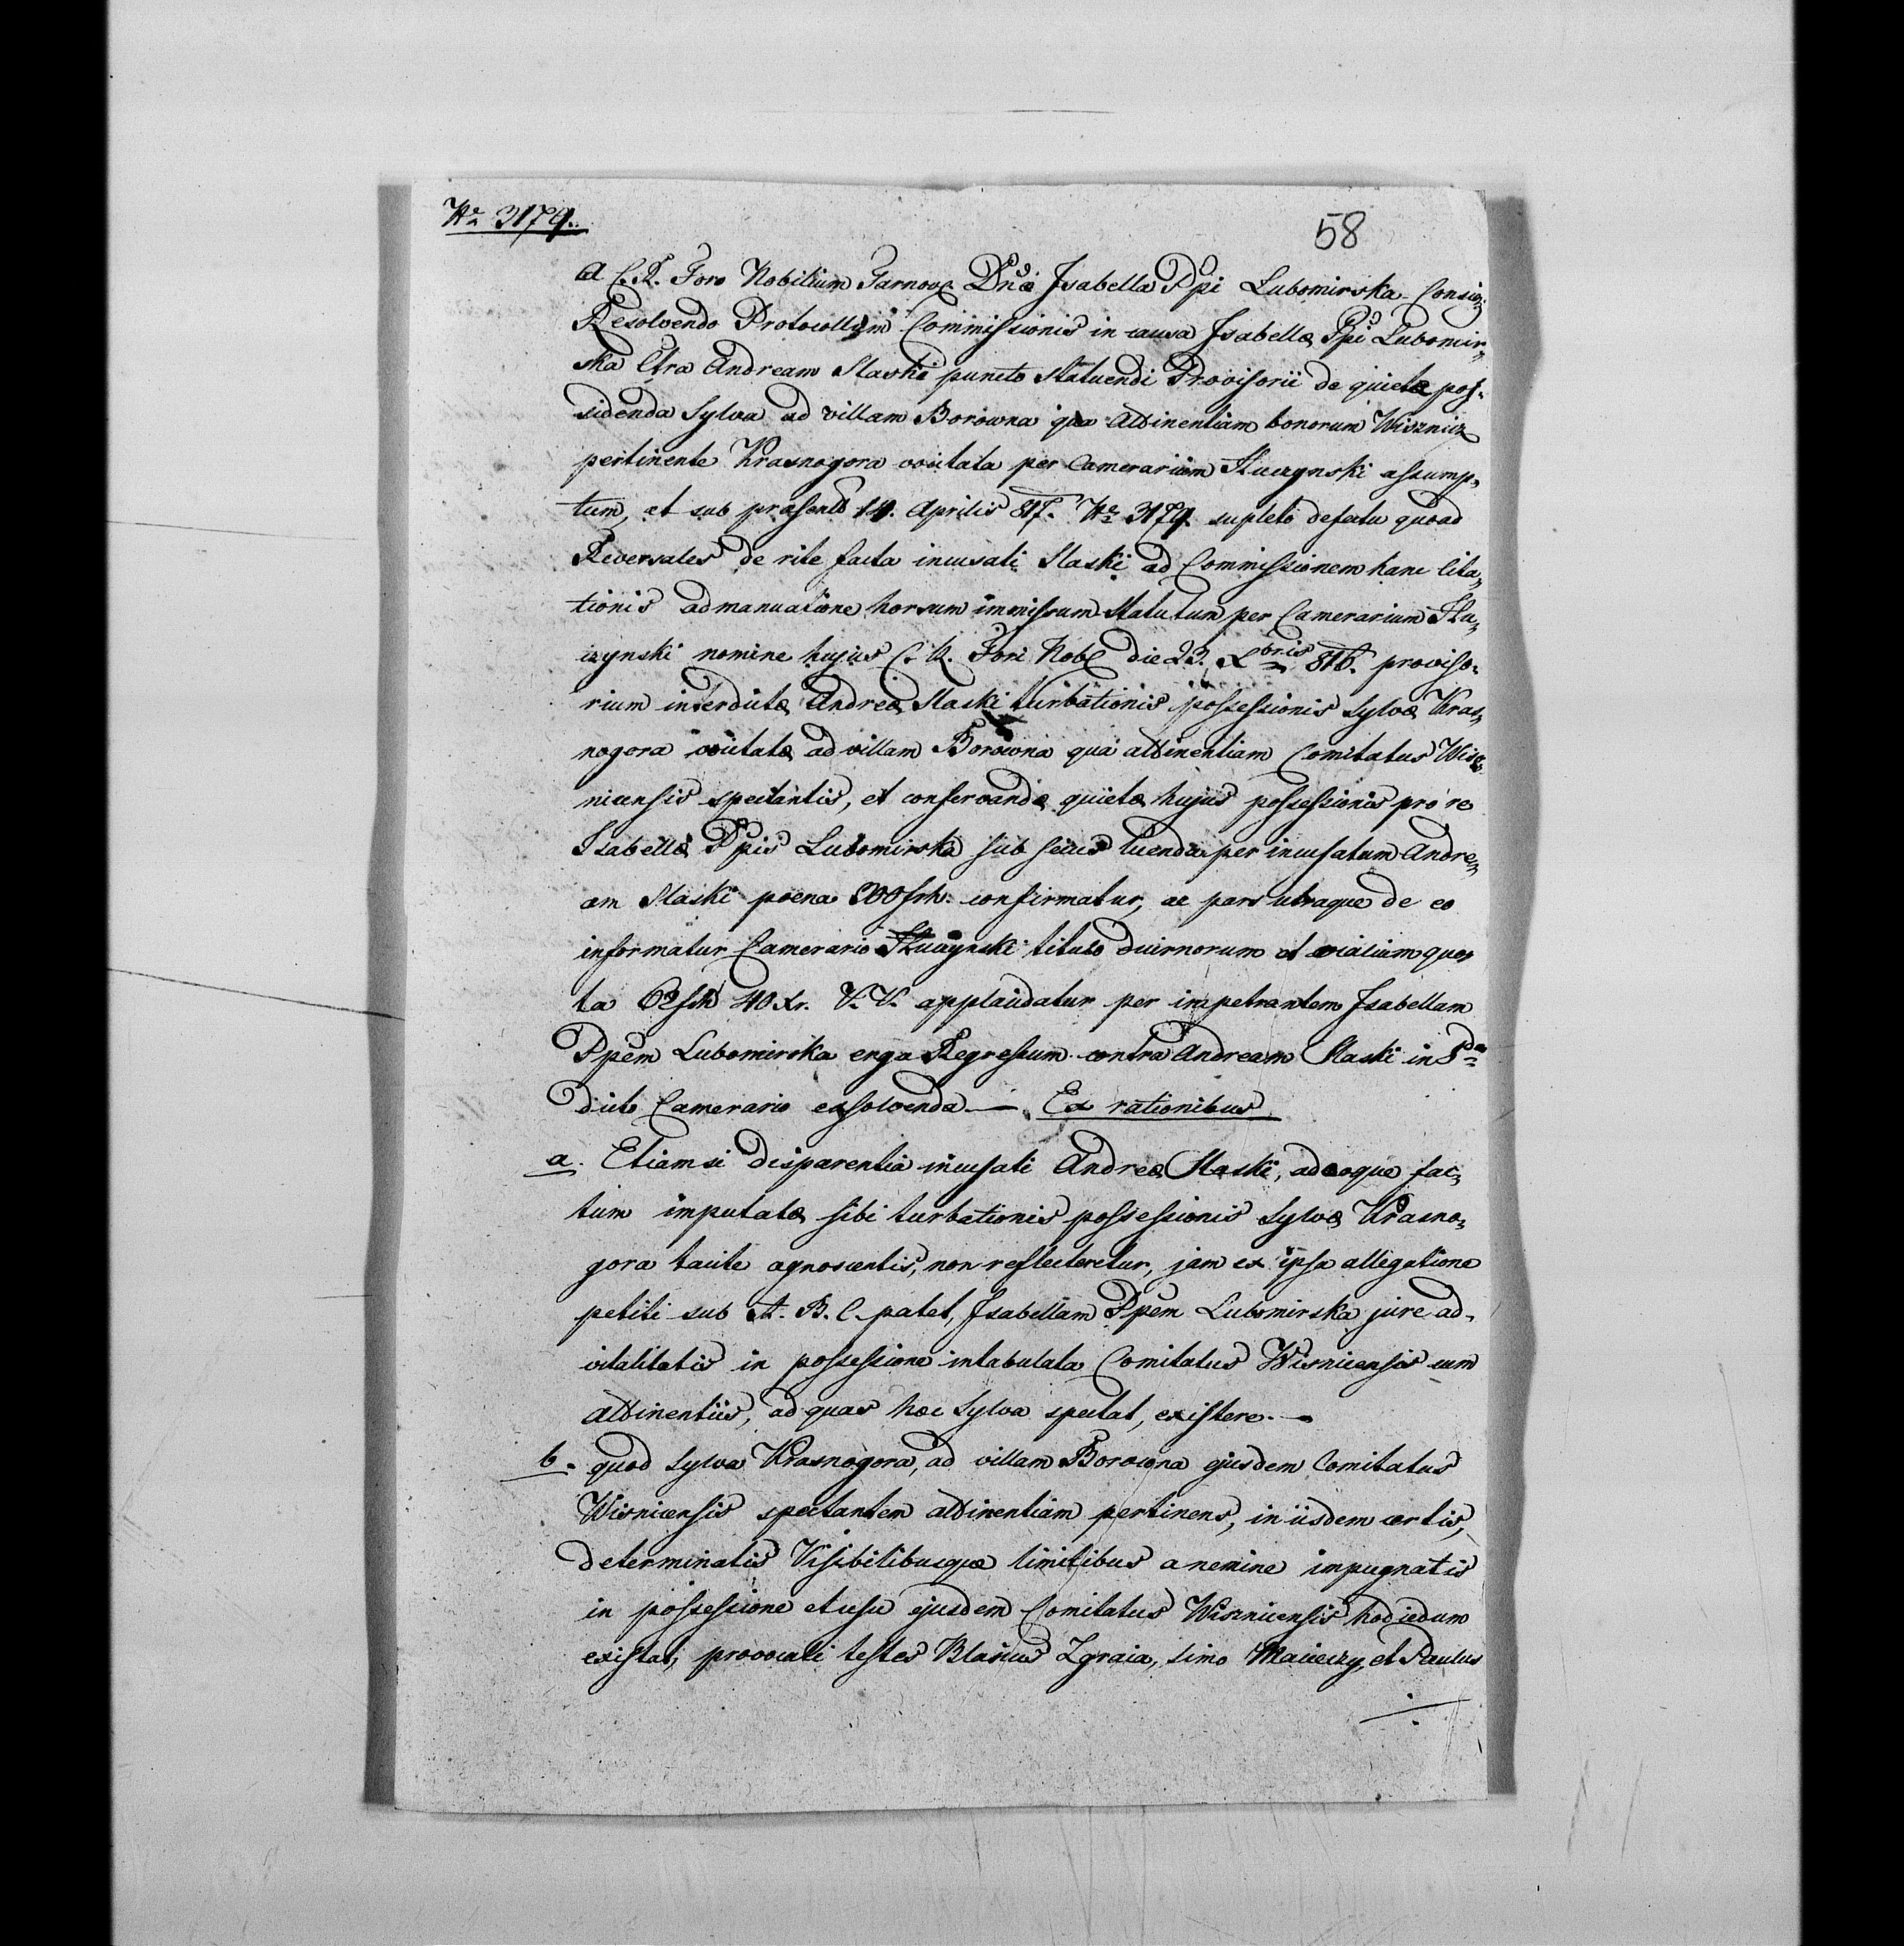 Nr 3179.
58
A C. R. Foro Nobilium Tarnov. Dnæ Isabella Ppi Lubomirska Consig:
Resolvendo Protocollum Commissionis in causa Isabellæ Ppi Lubomir„
ska Ctra Andream Slaski puncto Statuendi Provisorii de quieta pos„
sidenda Sylva ad villam Borowna qua attinentiam bonorum Wisznicz
pertinente Krasnogora vocitata per Camerarium assump„
tum, et sub præsento 14. Aprilis 817. Nr 3179. supleto defectu quoad
Reversales de rite facta incusati Slaski ad Commissionem hanc cita„
tionis admanuatione horsum immissum Statutum per Camerarium
czynski nomine hujus C. R. Fori Nobl die 23. Xbris 816. proviso„
rium interdictæ Andreæ Slaski turbationis possessionis Sylvæ Kras„
nogora vocitatæ ad villam Borowna qua attinentiam Comitatus Wisz„
nicensis spectantis, et conservandæ quietæ hujus possessionis pro re
Isabellæ Ppis Lubomirska sub secus luenda per incusatum Andre„
am Slaski poena 200 frh: confirmatur, ac pars utraque de eo
informatur Camerario titulo diurnorum et vialium quo„
ta 62 frh 40 xr. V. V. applaudatur per impetrantem Isabellam
Ppem Lubomirska erga Regressum contra Andream Slaski in
dicto Camerario exsolvenda — Ex rationibus
a. Etiamsi disparentia incusati Andreæ Slaski, adeoque fac„
tum imputatæ sibi turbationis possessionis Sylvæ Krasno„
gora tacite agnoscentis, non reflecteretur, jam ex ipsa allegatione
petiti sub A. B. C. patet, Isabellam Ppem Lubomirska jure ad„
vitalitatis in possessione intabulata Comitatus Wisnicensis cum
attinentiis, ad quas hæc Sylva spectat, existere. —
b. quod Sylva Krasnogora, ad villam Borowna ejusdem Comitatus
Wisnicensis spectantem attinentiam pertinens, in iisdem certis,
determinatis Visibilibusque limitibus a nemine impugnatis
in possessione et usu ejusdem Comitatus Wisznicensis hodiedum
existat, provocati testes Blasius Zgraia, Simo Macieczy, et Paulus